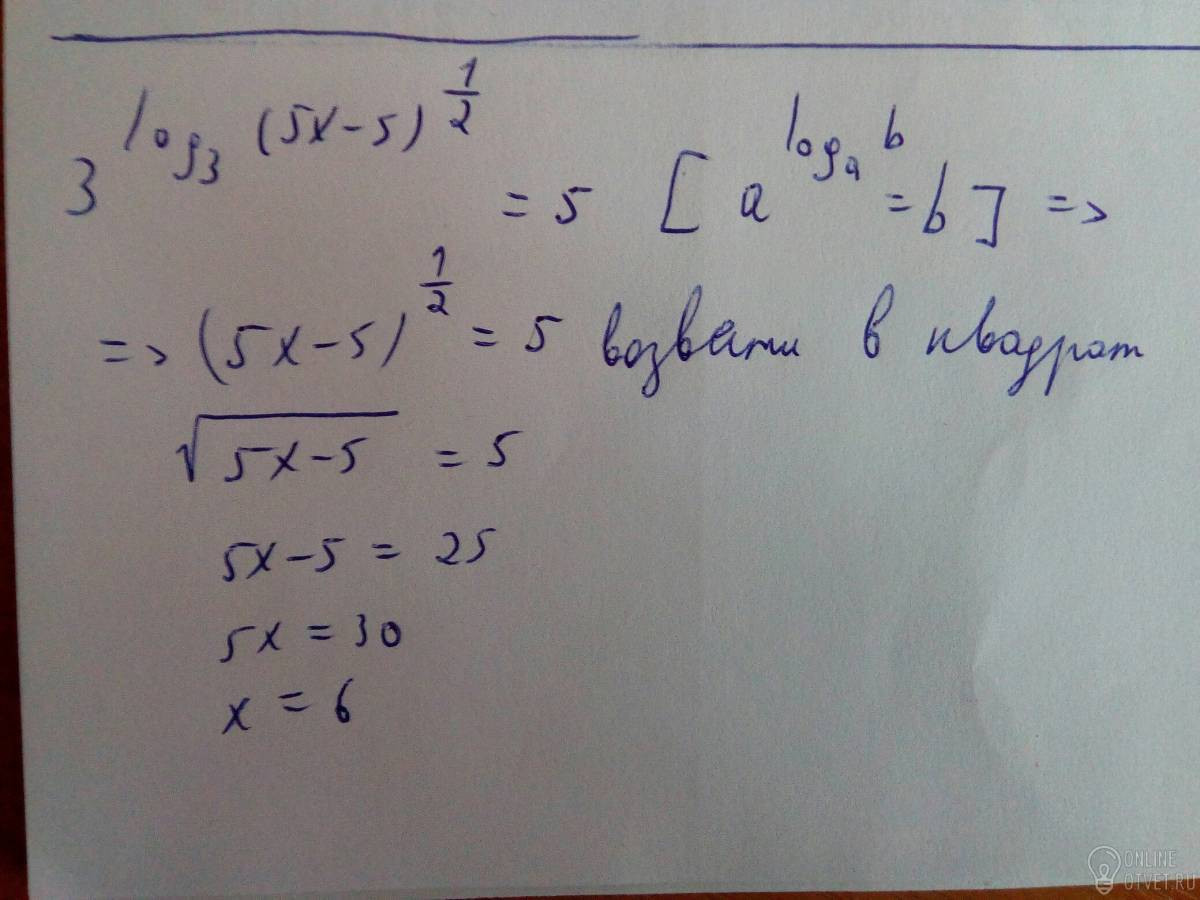 3^{log_3 (5x-5)^{1/2}} = 5 [a^{log_a b} = b] =>
=> (5x-5)^{1/2} = 5 возвести в квадрат
√(5x-5) = 5
5x-5 = 25
5x = 30
x = 6
ONLINE
OTVET.RU